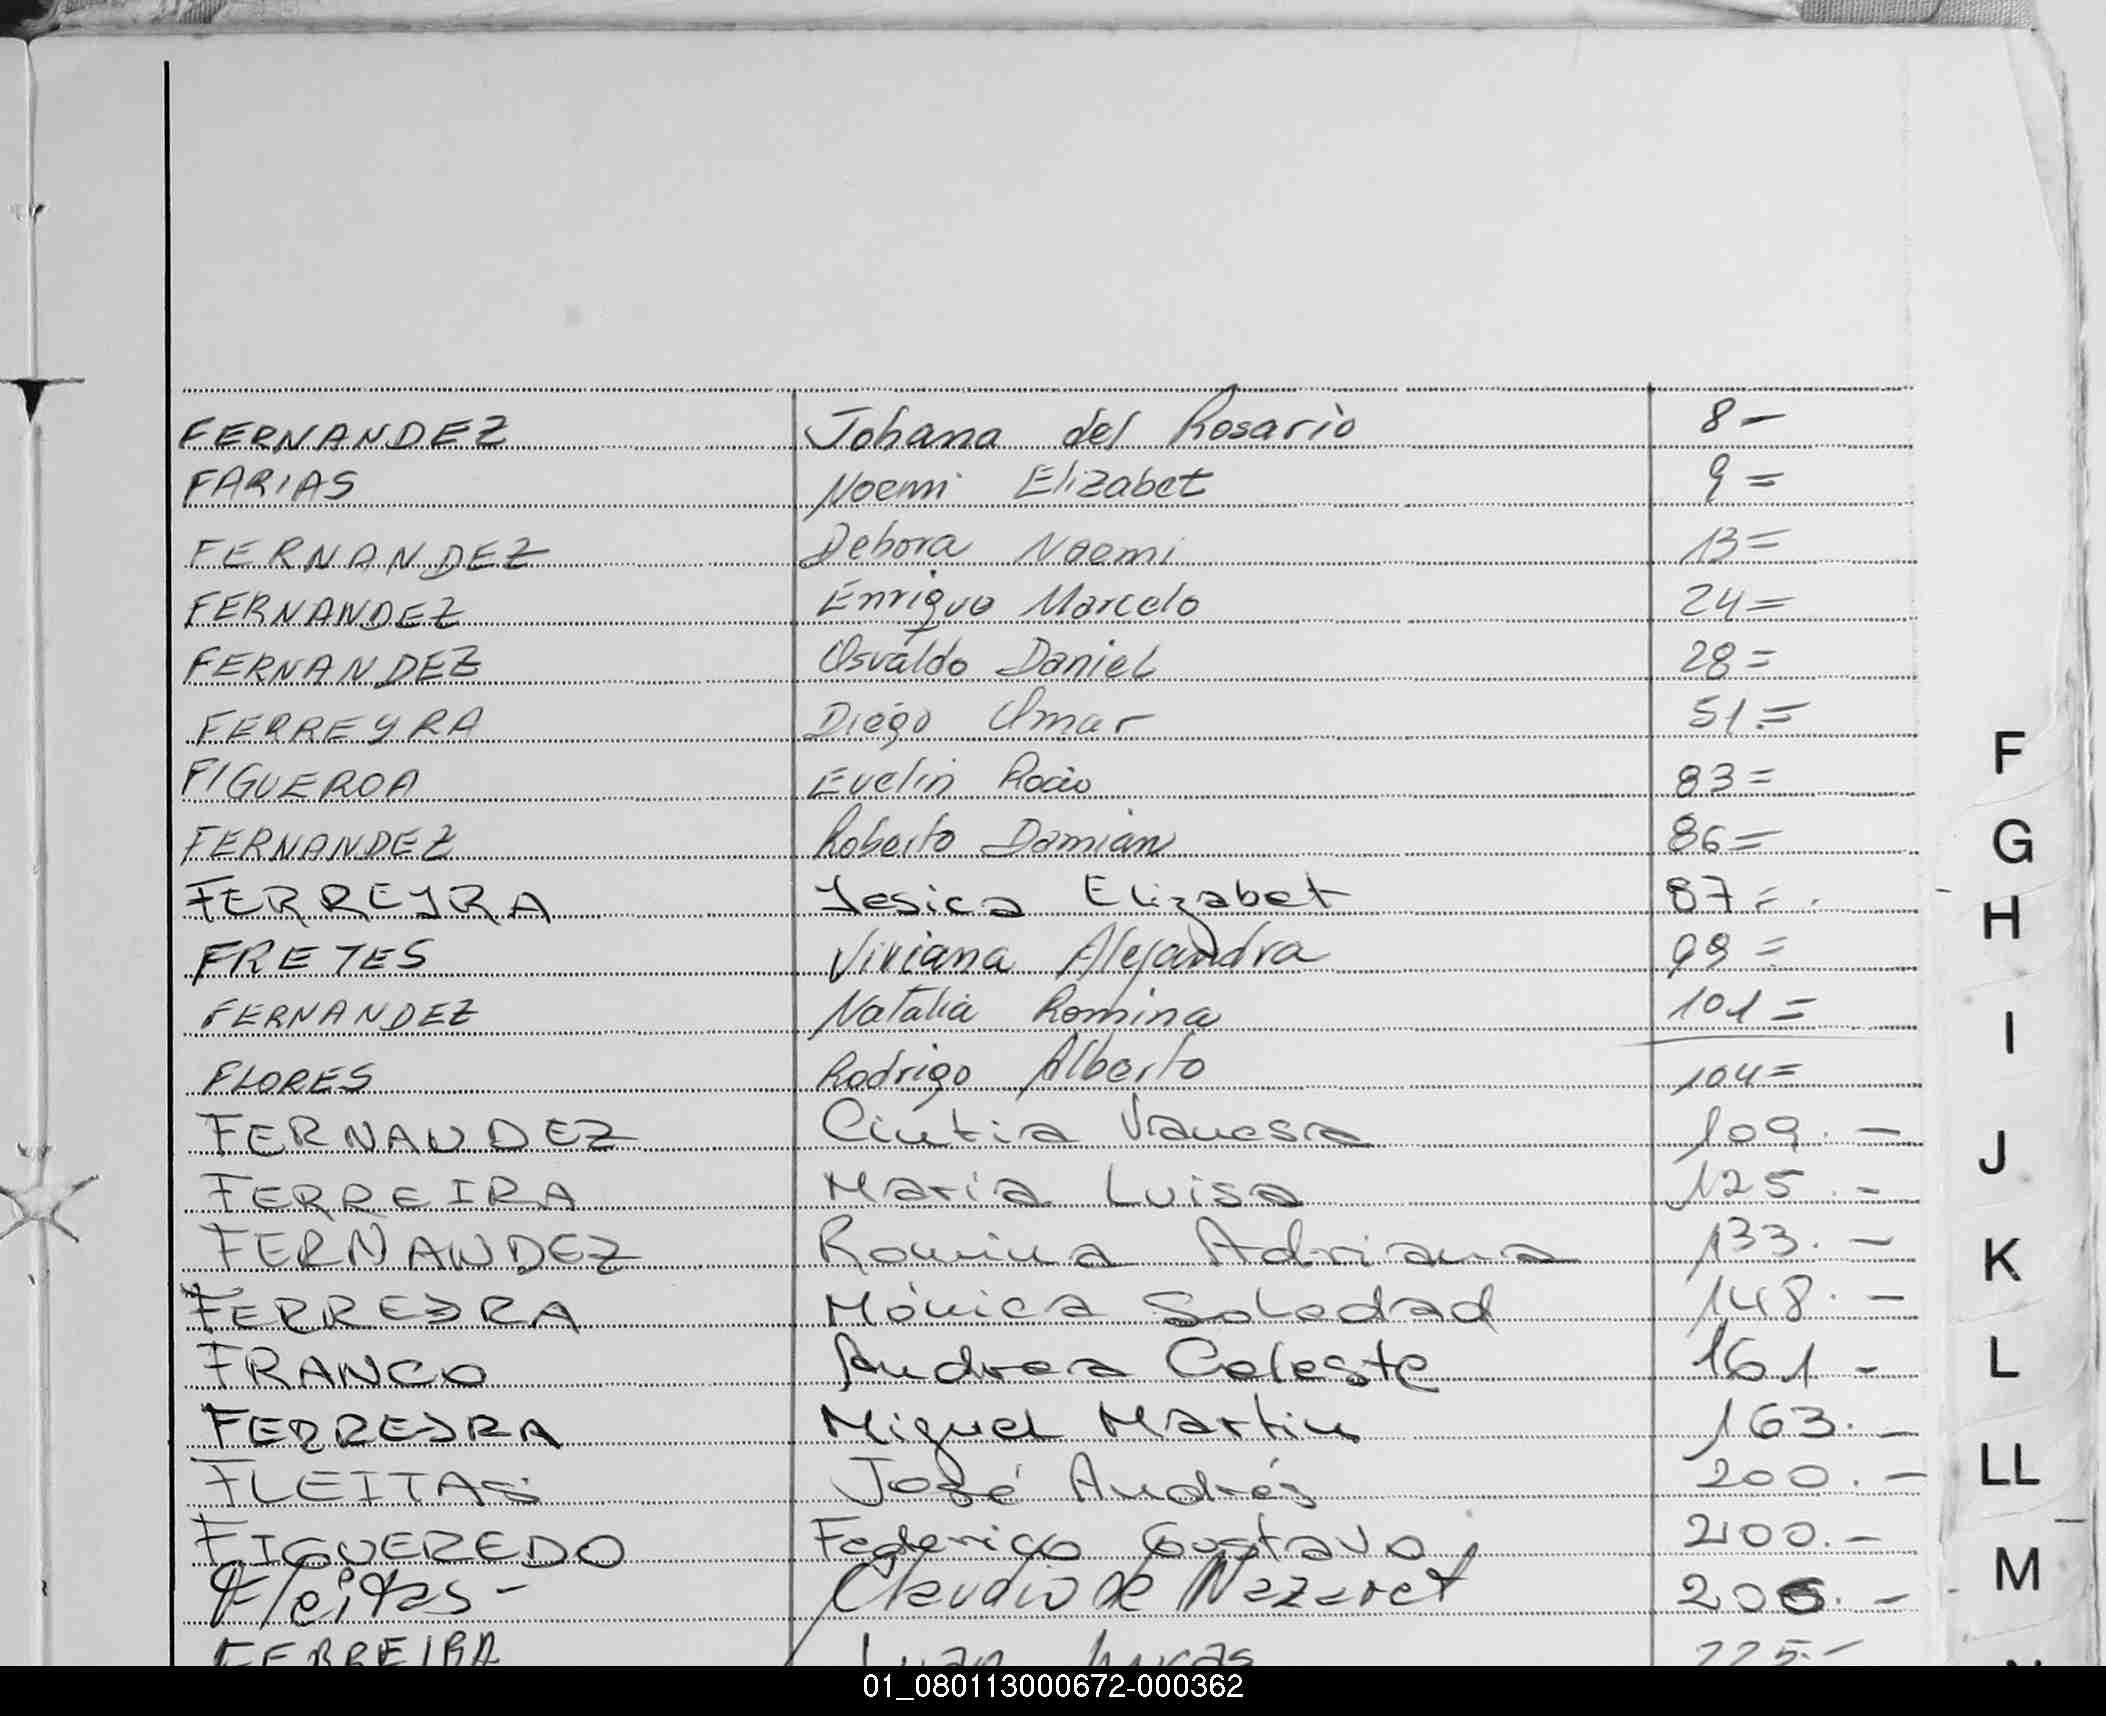 FERNANDEZ Johana del Rosario 8-
FARIAS Noemi Elizabet 9=
FERNANDEZ Debora Noemi 13=
FERNANDEZ Enrique Marcelo 24=
FERNANDEZ Osvaldo Daniel 28=
FERREYRA Diego Omar 51.=
FIGUEROA Evelin Rocio 83=
FERNANDEZ Roberto Damian 86=
FERREYRA Yesica Elizabet 87=
FRETES Viviana Alejandra 99=
FERNANDEZ Natalia Romina 101=
FLORES Rodrigo Alberto 104=
FERNANDEZ Cintia Vanesa 109.-
FERREIRA Maria Luisa 125.-
FERNANDEZ Romina Adriana 133.-
FERREYRA Mónica Soledad 148.-
FRANCO Andrea Celeste 161-
FERREYRA Miguel Martin 163.-
FLEITAS José Andrés 200.-
FIGUEREDO Federico Gustavo 200.-
Fleitas- Claudio de Nazaret 206.-
FERREIRA Juan Lucas 225.-
F
G
H
I
J
K
L
LL
M
01_080113000672-000362